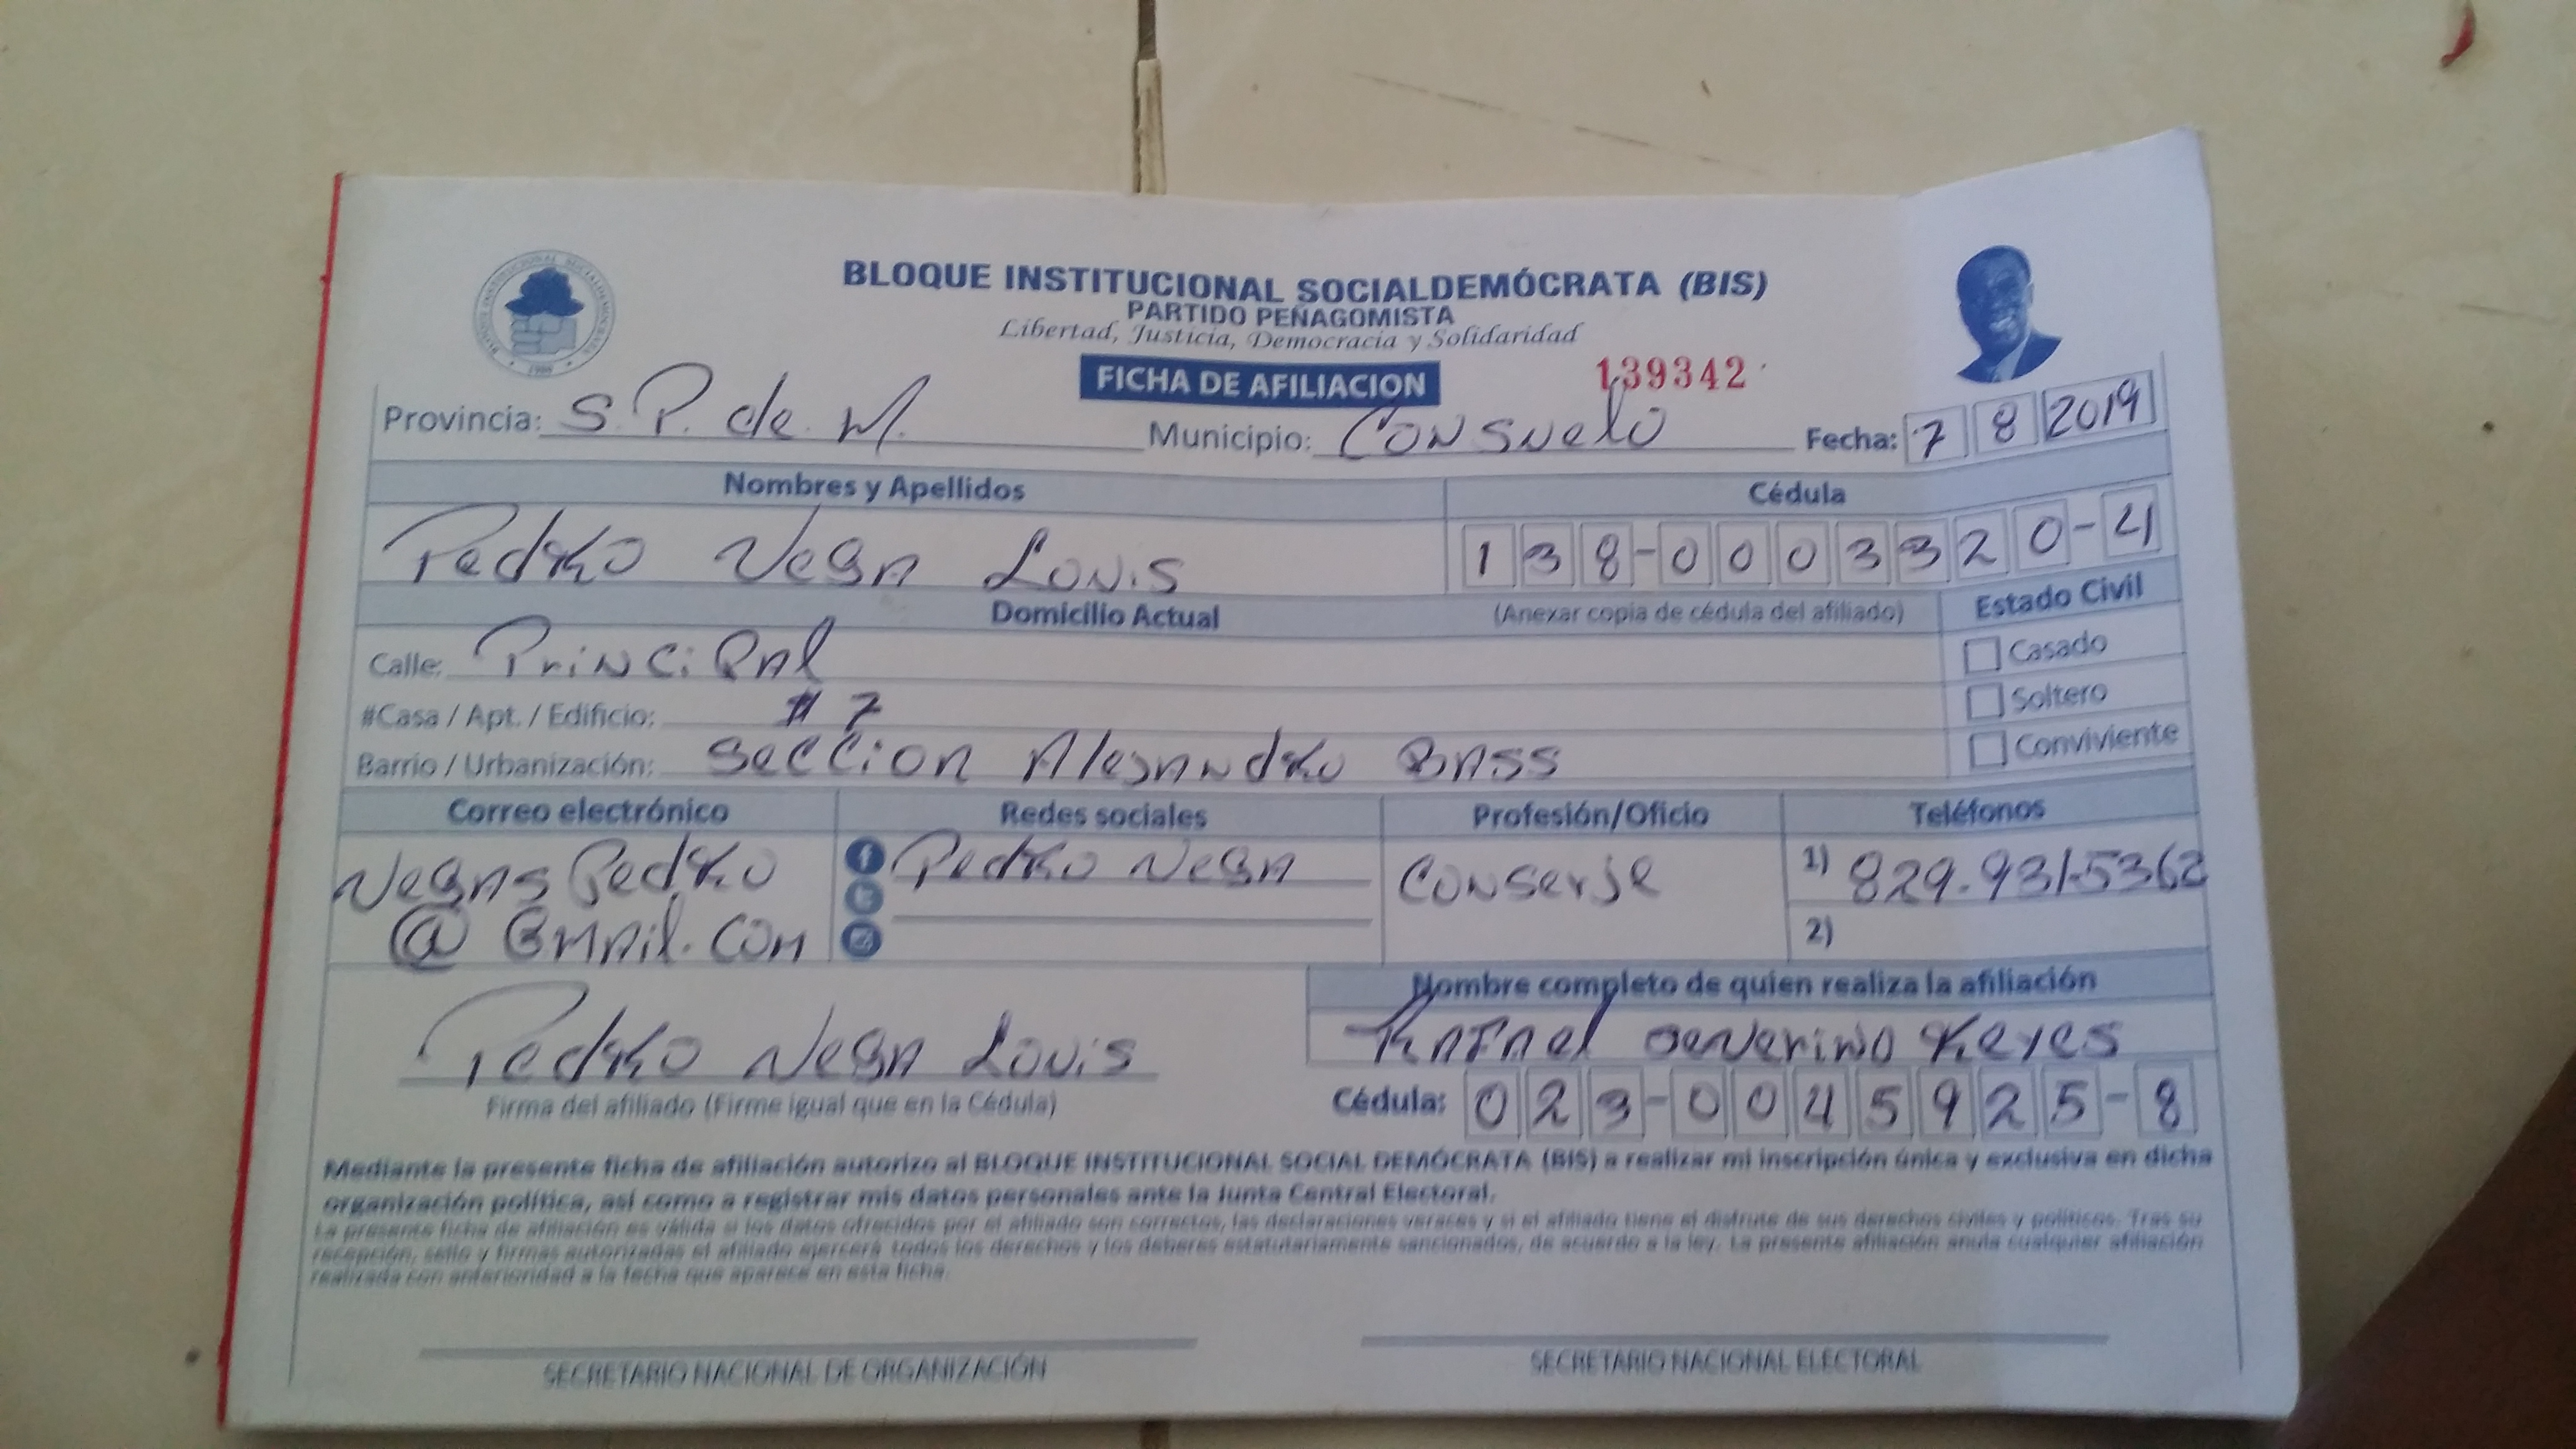 BLOQUE INSTITUCIONAL SOCIALDEMÓCRATA (BIS)
PARTIDO PEÑAGOMISTA
Libertad, Justicia, Democracia y Solidaridad
FICHA DE AFILIACION 139342
Provincia: S.P. de M. Municipio: Consuelo Fecha: 7 8 2019
Nombres y Apellidos Cédula
Pedro Vega Louis 138-0003320-4
Domicilio Actual (Anexar copia de cédula del afiliado) Estado Civil
Calle: Principal Casado
#Casa / Apt. / Edificio: #7 Soltero
Barrio / Urbanización: Seccion Alejandro Bass Conviviente
Correo electrónico Redes sociales Profesión/Oficio Teléfonos
Pedro Vega Conserje 1) 829-931-5362
@Gmail.com 2)
Nombre completo de quien realiza la afiliación
Pedro Vega Louis Rafael Severino Reyes
Firma del afiliado (Firme igual que en la Cédula) Cédula: 023-0045925-8
Mediante la presente ficha de afiliación autorizo al BLOQUE INSTITUCIONAL SOCIAL DEMÓCRATA (BIS) a realizar mi inscripción única y exclusiva en dicha
organización política, así como a registrar mis datos personales ante la Junta Central Electoral.
La presente ficha de afiliación es válida si los datos ofrecidos por el afiliado son correctos, las declaraciones veraces y si el afiliado tiene el disfrute de sus derechos civiles y políticos. Tras su
recepción, sello y firmas autorizadas el afiliado ejercerá todos los derechos y los deberes estatutariamente sancionados, de acuerdo a la ley. La presente afiliación anula cualquier afiliación
realizada con anterioridad a la fecha que aparece en esta ficha.
SECRETARIO NACIONAL DE ORGANIZACIÓN SECRETARIO NACIONAL ELECTORAL